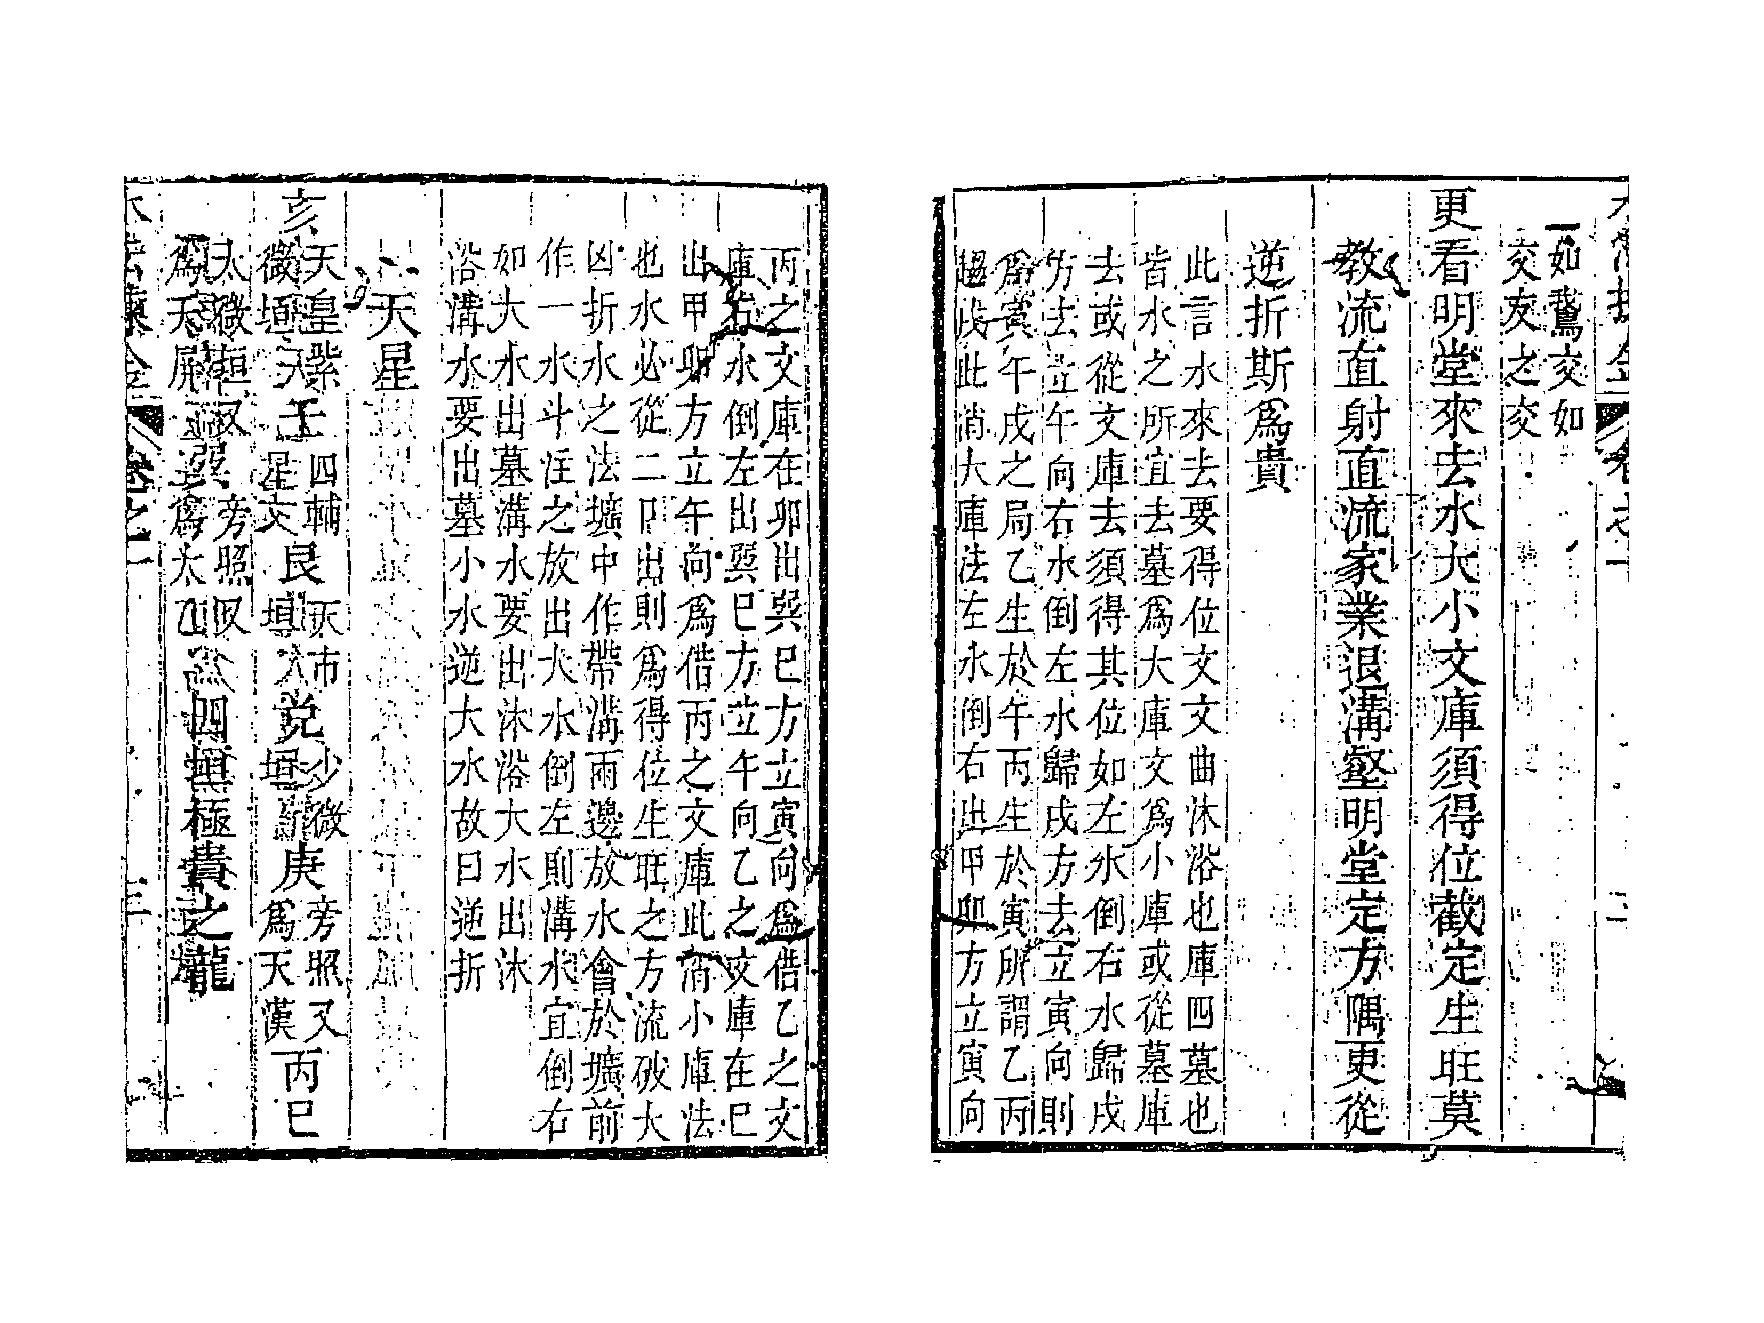 如鵞交如
交友之交
更看明堂來去水大小文庫須得位截定生旺莫
教流直射直流家業退溝壑明堂定方隅更從
逆折斯為貴
此言水來去要得位文文曲沐浴也庫四墓也
皆水之所宜去墓為大庫文為小庫或從墓庫
去或從文庫去須得其位如左水倒右水歸戌
方去立午向右水倒左水歸戌方去立寅向則
為寅午戌之局乙生於午丙生於寅所謂乙丙
趨戌此消大庫法左水倒右出甲卯方立寅向
丙之文庫在卯出巽巳方立寅向為借乙之文
庫右水倒左出巽巳方立午向乙之文庫在巳
出甲卯方立午向為借丙之文庫此消小庫法
也水必從二口出則為得位生旺之方流破大
凶折水之法壙中作帶溝兩邊放水會於壙前
作一水斗注之放出大水倒左則溝水宜倒右
如大水出墓溝水要出沐浴大水出沐
浴溝水要出墓小水逆大水故曰逆折
天星
亥天皇紫微垣天王四輔星文艮天市垣兌少微垣庚旁照又為天漢丙巳
太微垣又為天屏巽旁照又為太乙四垣極貴之龍